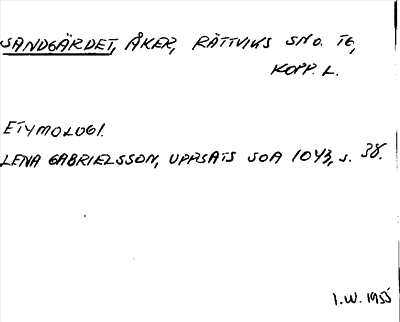 SANDGÄRDET, ÅKER, RÄTTVIKS SND. TG,
KOPP. L.
ETYMOLOGI.
LENA GABRIELSSON, UPPSATS SOA 1043, s. 38.
I.W. 1955